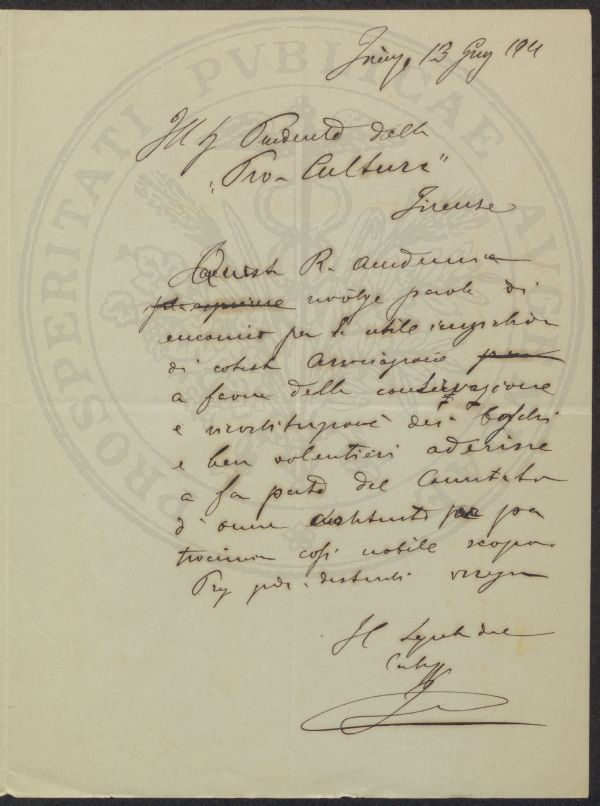 PROSPERITATI PVBLICAE AVGENDAE
Firenze, 13 Giug 1911
Ill Sig Presidente della
"Pro-Cultura"
Firenze
Questa R. Accademia
rivolge parole di
encomio per la utile iniziativa
di cotesta Associazione
a favore della conservazione
e ricostituzione dei boschi
e ben volentieri aderisce
a far parte del Comitato
di onore costituito per pa
trocinare così nobile scopo
distinti
Il Segretario